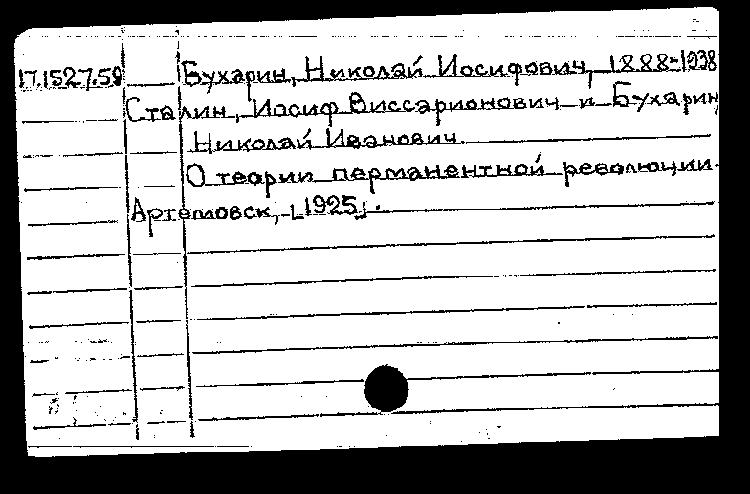 17.1527.59 Бухарин, Николай Иосифович, 1888-1938
Сталин, Иосиф Виссарионович и Бухарин,
Николай Иванович.
О теории перманентной революции.
Артемовск, [1925].